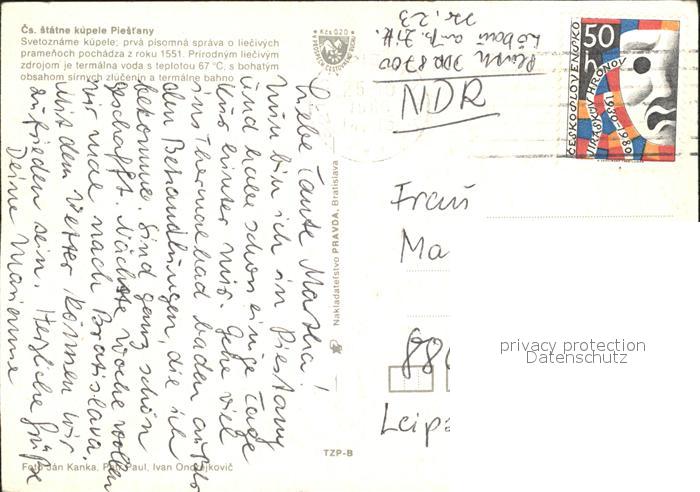 Čs. štátne kúpele Piešťany
Svetoznáme kúpele; prvá písomná správa o liečivých
prameňoch pochádza z roku 1551. Prírodným liečivým
zdrojom je termálna voda s teplotou 67 °C, s bohatým
obsahom sírnych zlúčenín a termálne bahno
Liebe Tante Martha!
Nun bin ich in Piestany
und habe schon einige Tage
Kur hinter mir. Gehe viel
ins Thermalbad baden außer
den Behandlungen, die ich
bekomme. Sind ganz schön
geschafft. Nächste Woche wollen
wir mal nach Bratislava.
Mit dem Wetter können wir
zufrieden sein. Herzliche Grüße
Deine Marianne
Foto Ján Kanka, Paul, Ivan Ondrejkovič
Nakladateľstvo PRAVDA, Bratislava
TZP-B
Kčs 0,20
DDR 8700
Löbau
Nr. 23
NDR
50 h
ČESKOSLOVENSKO
JIRÁSKŮV HRONOV
1930-1980
Frau
Ma
Leipz
privacy protection
Datenschutz